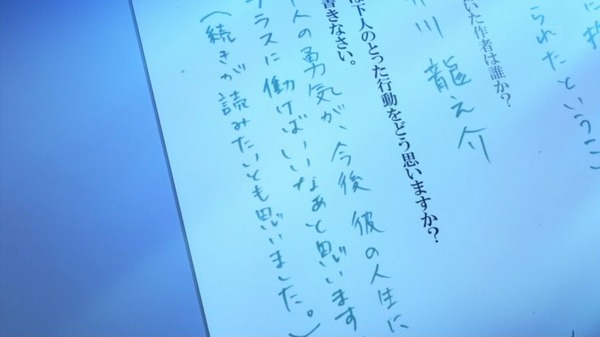 られたというこ
いた作者は誰か？
川 龍之介
下人のとった行動をどう思いますか？
書きなさい。
人の勇気が、今後 彼の人生に
ラスに働けばいいなあと思います
（続きが読みたいとも思いました。）